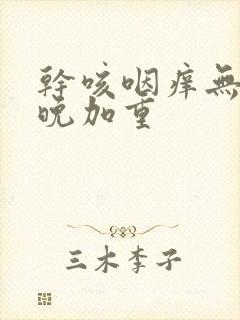 幹咳咽痒無
晚加重
三木李子